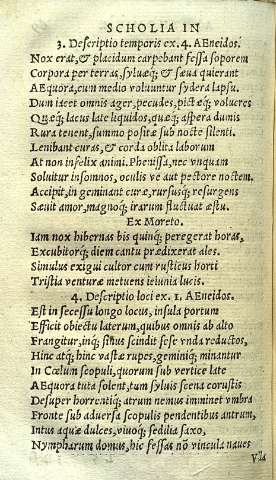 SCHOLIA IN
3. Descriptio temporis ex .4. AEneidos.
Nox erat, & placidum carpebant fessa soporem
Corpora per terras, syluæq; & sæua quierant
AEquora, cum medio voluuntur sydera lapsu.
Dum iacet omnis ager, pecudes, pictæq; volucres
Quæq; lacus late liquidos, quæq; aspera dumis
Rura tenent, somno positæ sub nocte silenti.
Lenibant curas, & corda oblita laborum
At non infelix animi Phenissa, nec vnquam
Soluitur insomnos, oculis ve aut pectore noctem.
Accipit, in geminant curæ, rursusq; resurgens
Sæuit amor, magnoq; irarum fluctuat æstu.
Ex Moreto.
Iam nox hibernas bis quinq; peregerat horas,
Excubitorq; diem cantu prædixerat ales.
Simulus exigui cultor cum rusticus horti
Tristia venturæ metuens ieiunia lucis.
4. Descriptio loci ex. 1. AEneidos.
Est in secessu longo locus, insula portum
Efficit obiectu laterum, quibus omnis ab alto
Frangitur, inq; sinus scindit sese vnda reductos,
Hinc atq; hinc vastæ rupes, geminiq; minantur
In Cœlum scopuli, quorum sub vertice late
AEquora tuta solent, tum syluis scena coruscis
Desuper horrentiq; atrum nemus imminet vmbra
Fronte sub aduersa scopulis pendentibus antrum,
Intus aquæ dulces, viuoq; sedilia saxo,
Nympharum domus, hic fessas nõ vincula naues
Vlla